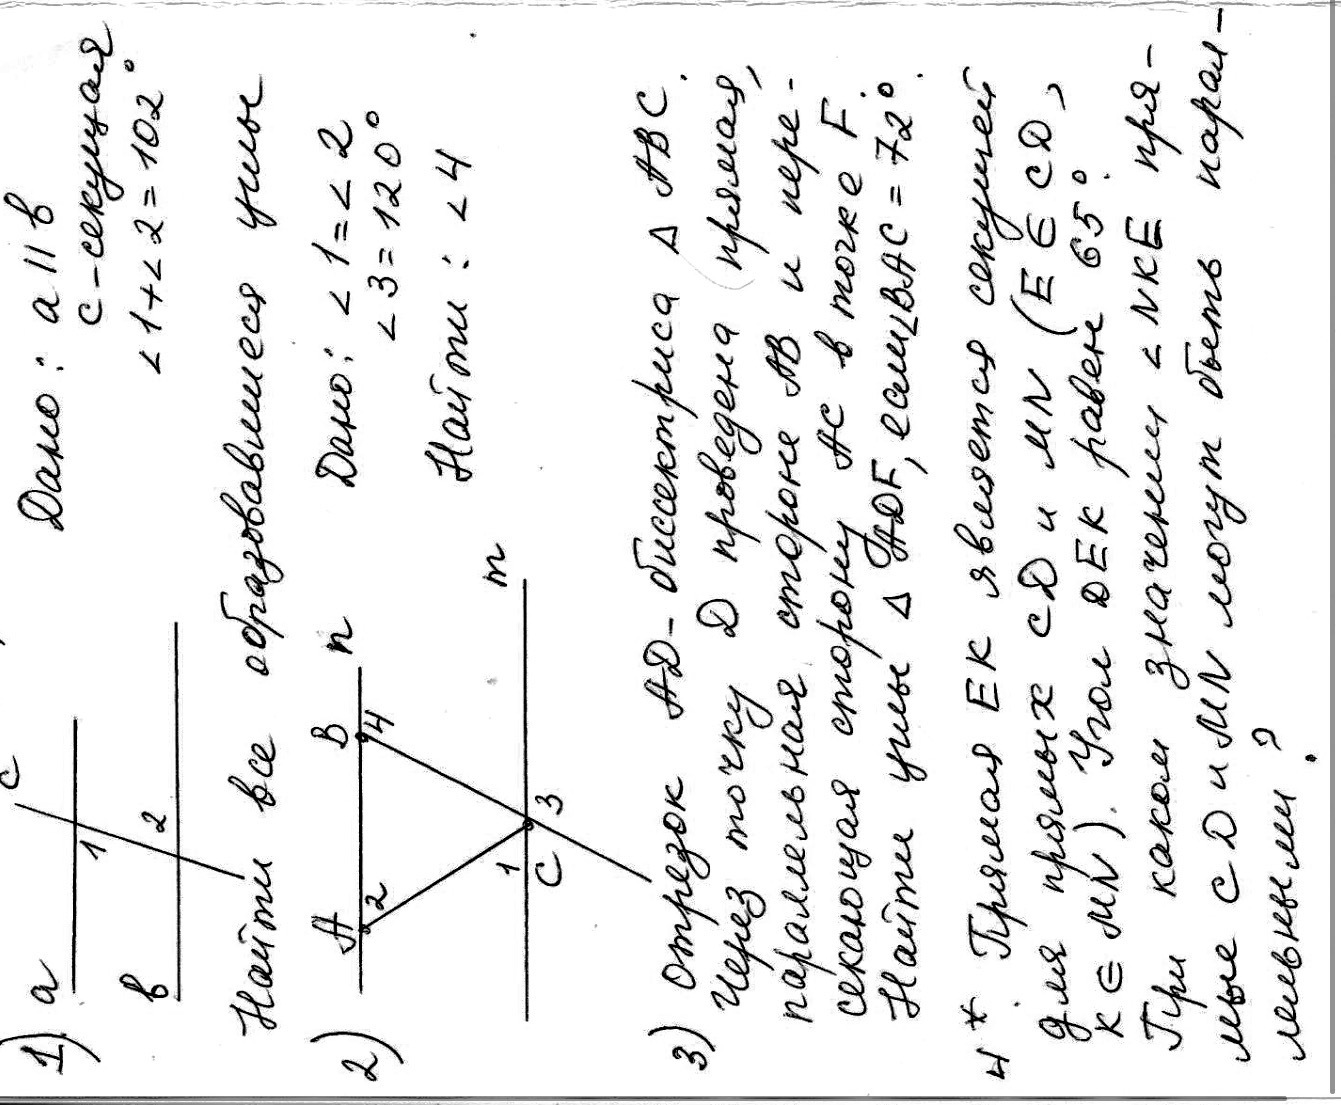 1) a
c
1
2
в
Дано: a || в
c – секущая
< 1 + < 2 = 102°
Найти все образовавшиеся углы
2)
A
B
n
2
4
1
3
C
m
Дано: < 1 = < 2
< 3 = 120°
Найти: < 4
3) Отрезок AD – биссектриса Δ ABC.
Через точку D проведена прямая,
параллельная стороне AB и пере-
секающая сторону AC в точке F.
Найти углы Δ ADF, если ∠BAC = 72°.
4* Прямая EK является секущей
для прямых CD и MN (E ∈ CD,
K ∈ MN). Угол DEK равен 65°.
При каком значении < NKE пря-
мые CD и MN могут быть парал-
лельными?